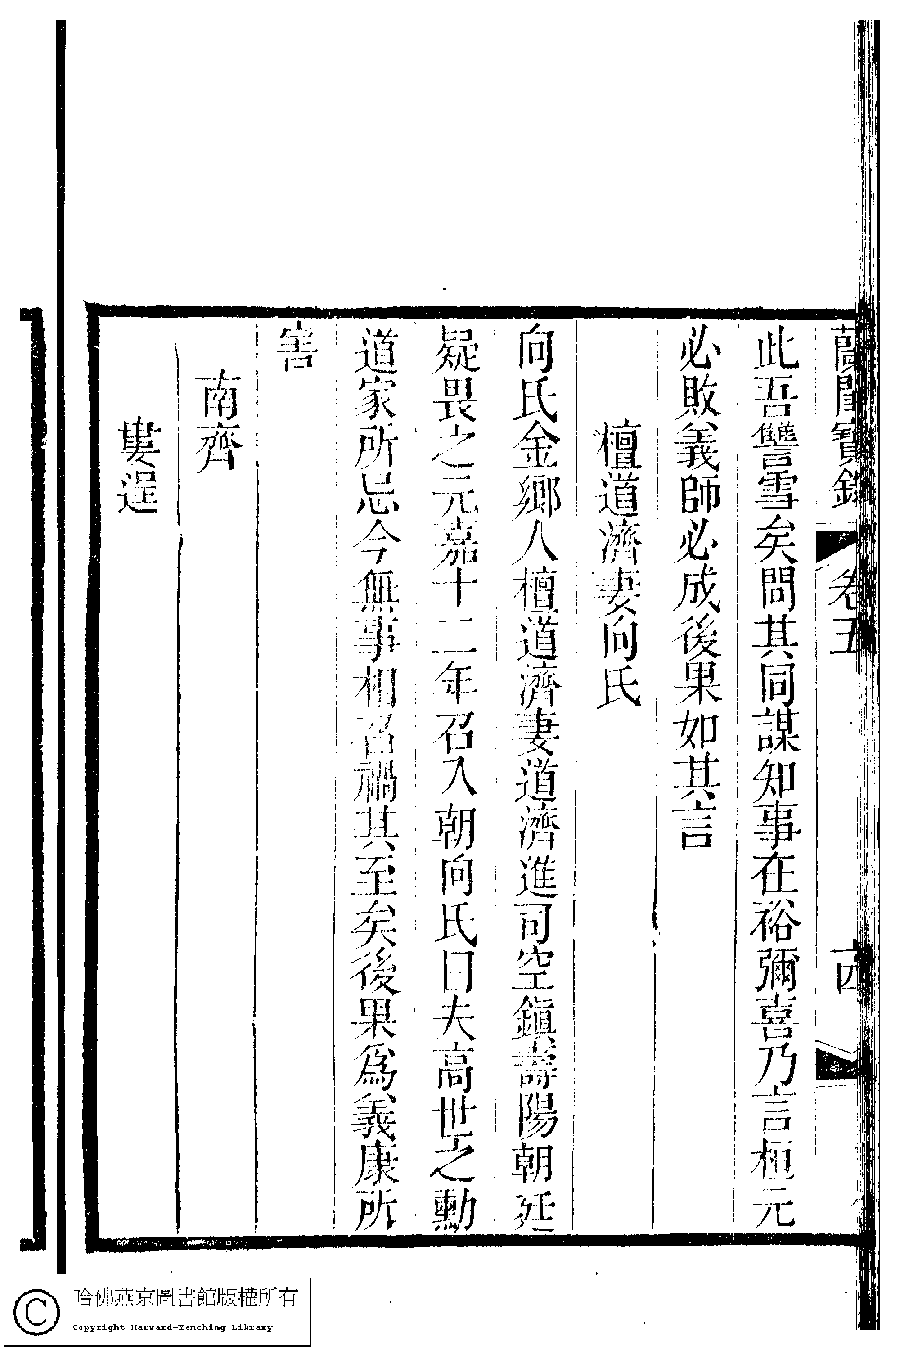 蘭閨寶錄 卷五 十四
此吾讐雪矣問其同謀知事在裕彌喜乃言桓元
必敗義師必成後果如其言
檀道濟妻向氏
向氏金鄉人檀道濟妻道濟進司空鎭壽陽朝廷
疑畏之元嘉十二年召入朝向氏曰夫高世之勳
道家所忌今無事相召禍其至矣後果爲義康所
害
南齊
婁逞
哈佛燕京圖書館版權所有
Copyright Harvard-Yenching Library